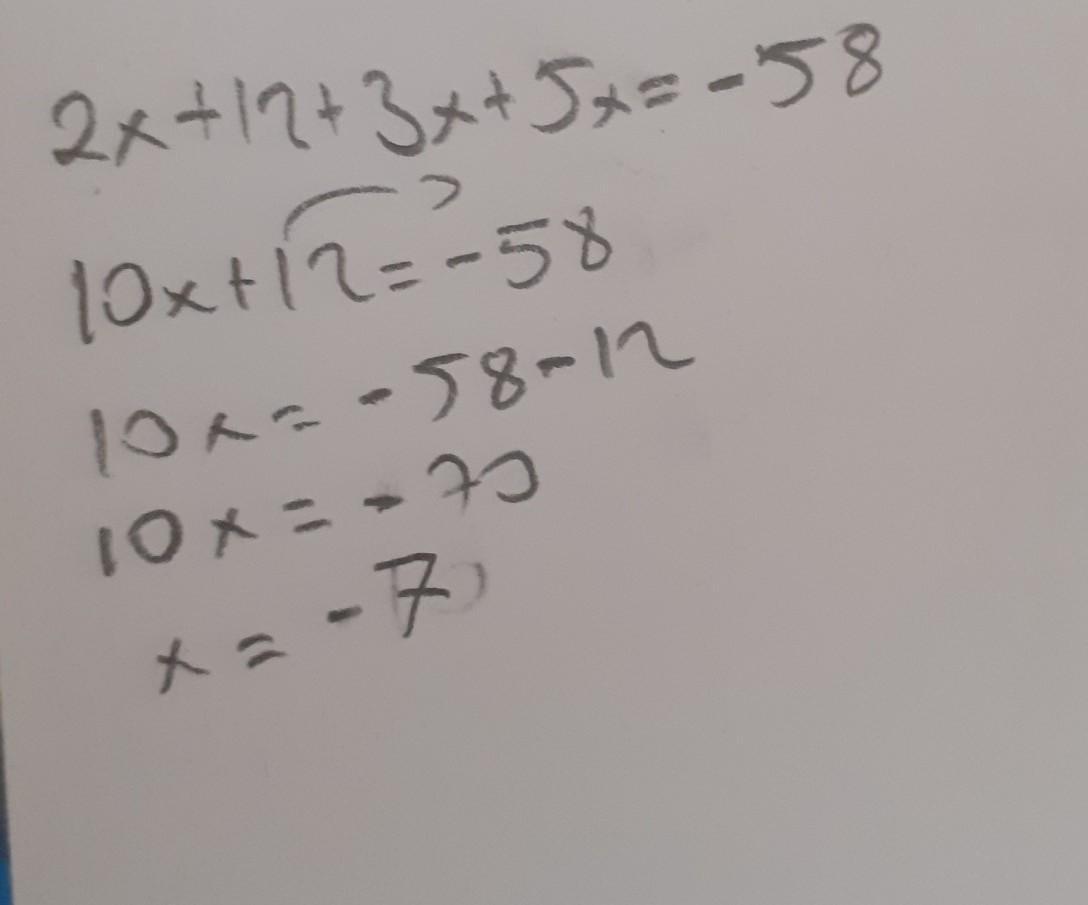 2x+12+3x+5x=-58
10x+12=-58
10x=-58-12
10x=-70
x=-7